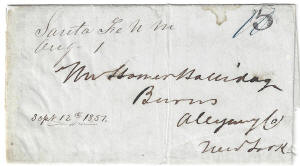 Santa Fe N M
Aug 1
Mr Homer Holliday
Burns
Sept 12th 1851.
Allegany Co
New York